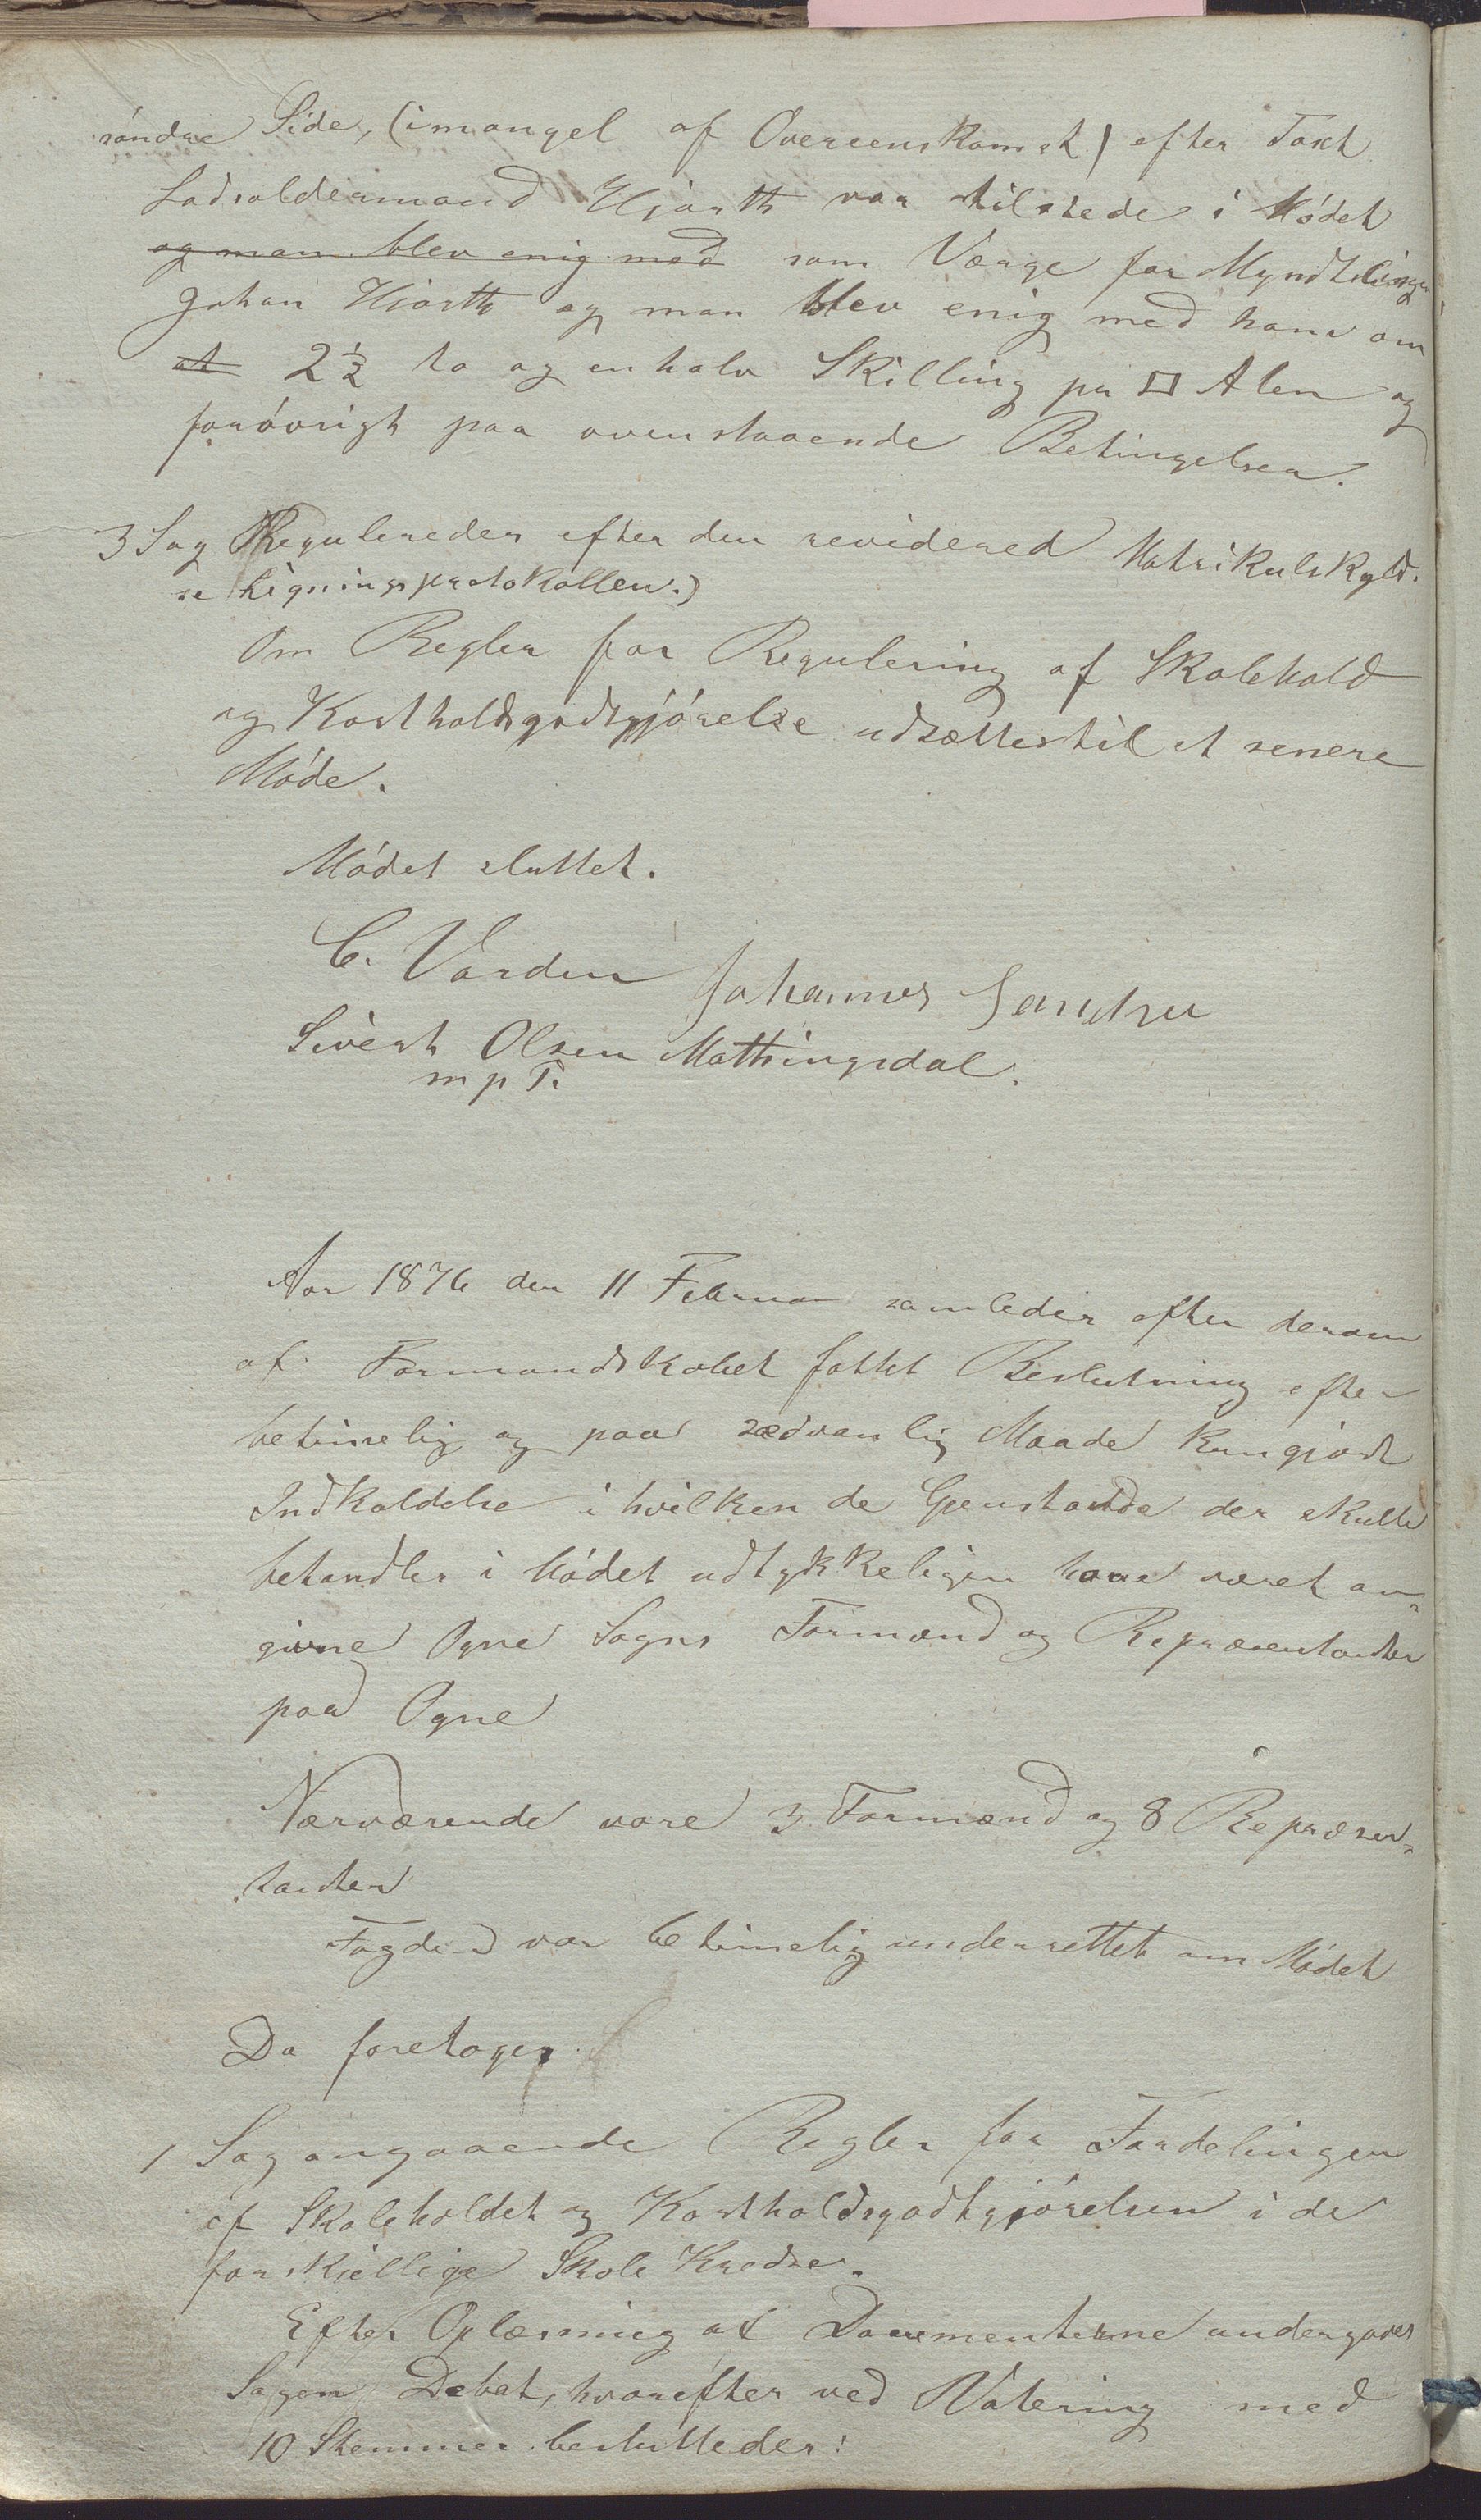 söndre Side, (imangel af Overeenskomst) efter Taxt
Lodsoldermand Hjorth var tilstede i Mödet
og man blev enig med som Værge for Myndtlingen
Johan Hiorth og man blev enig med ham om
at 2½ to og en halv Skilling pr □ Alen og
forövrigt paa ovenstaaende Betingelser.
3 Sag Reguleredes efter den revidered Matrikulskyld.
se Ligningsprotokollen.)
Om Regler for Regulering af Skolehold
og Kostholdsgodtgjörelse udsættes til et senere
Möde.
Mödet sluttet.
C. Varden Johannes
Sivert Olsen Matningsdal.
m p P.
Aar 1876 den 11 Februar samledes efter derom
af Formandskabet fattet Beslutning efter
betimelig og paa sædvanlig Maade kungjort
Indkaldelse i hvilken de Gjenstande der skulle
behandles i Mödet udtykkeligen have været an-
givne Ogne Sogns Formænd og Repræsentanter
paa Ogne
Nærværende vare 3 Formænd og 8 Repræsen-
tanter
Fogden var betimelig underrettet om Mödet
Da foretoges
1 Sag angaaende Regler for Fordelingen
af Skoleholdet og Kostholdsgodtgjörelsen i de
forskjellige Skole Kredse.
Efter Oplæsning af Documenterne undergaves
Sagen Debat, hvorefter ved Votering med
10 Stemmer besluttedes: